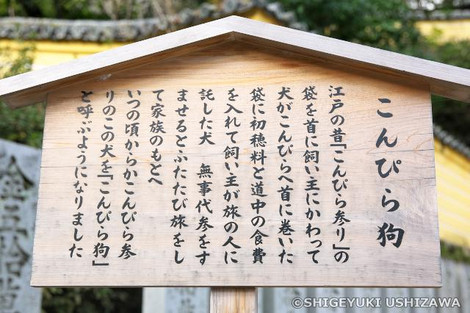 こんぴら狗
江戸の昔「こんぴら参り」の
袋を首に飼い主にかわって
犬がこんぴらへ首に巻いた
袋に初穂料と道中の食費
を入れて飼い主が旅の人に
託した犬　無事代参をす
ませるとふたたび旅をし
て家族のもとへ
いつの頃からかこんぴら参
りのこの犬を「こんぴら狗」
と呼ぶようになりました
©SHIGEYUKI USHIZAWA